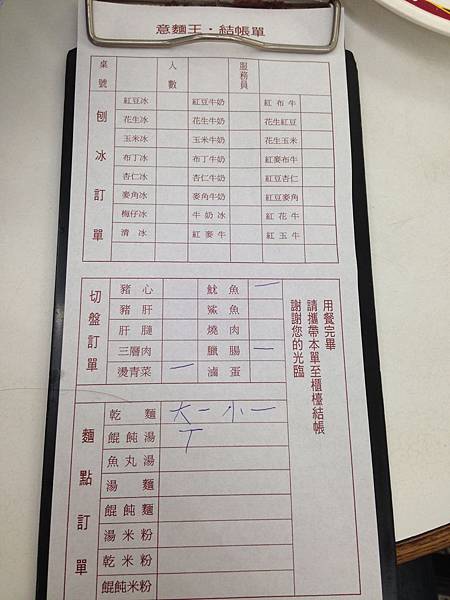 意麵王・結帳單
桌號 人數 服務員
刨冰訂單
紅豆冰 紅豆牛奶 紅布牛
花生冰 花生牛奶 花生紅豆
玉米冰 玉米牛奶 花生玉米
布丁冰 布丁牛奶 紅麥布牛
杏仁冰 杏仁牛奶 紅豆杏仁
麥角冰 麥角牛奶 紅豆麥角
梅仔冰 牛奶冰 紅花牛
清冰 紅麥牛 紅玉牛
切盤訂單
豬心 魷魚 一
豬肝 鯊魚
肝腱 燒肉
三層肉 臘腸 一
燙青菜 一 滷蛋
用餐完畢
請攜帶本單至櫃檯結帳
謝謝您的光臨
麵點訂單
乾麵 大一小一
餛飩湯 丅
魚丸湯
湯麵
餛飩麵
湯米粉
乾米粉
餛飩米粉